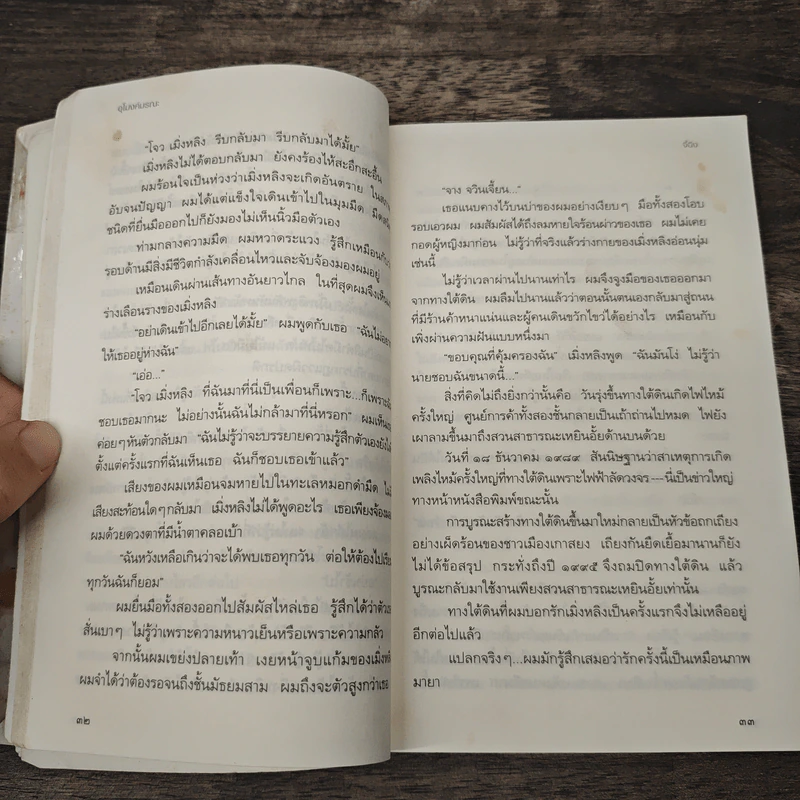 อุโมงค์มรณะ
"โจว เมิ่งหลิง รีบกลับมา รีบกลับมาได้มั้ย"
เมิ่งหลิงไม่ได้ตอบกลับมา ยังคงร้องไห้สะอึกสะอื้น
ผมร้อนใจเป็นห่วงว่าเมิ่งหลิงจะเกิดอันตราย
อับจนปัญญา ผมได้แต่แข็งใจเดินเข้าไปในมุมมืด
ชนิดที่ยื่นมือออกไปก็ยังมองไม่เห็นนิ้วมือตัวเอง
ท่ามกลางความมืด ผมหวาดระแวง รู้สึกเหมือน
รอบด้านมีสิ่งมีชีวิตกำลังเคลื่อนไหวและจับจ้องมองผมอยู่
เหมือนเดินผ่านเส้นทางอันยาวไกล ในที่สุดผมจึง
ร่างเลือนรางของเมิ่งหลิง
"อย่าเดินเข้าไปอีกเลยได้มั้ย" ผมพูดกับเธอ
ให้เธออยู่ห่างฉัน"
"เอ่อ..."
"โจว เมิ่งหลิง ที่ฉันมาที่นี่เป็นเพื่อนก็เพราะ...ก็เพราะ
ชอบเธอมากนะ ไม่อย่างนั้นฉันไม่กล้ามาที่นี่หรอก"
ค่อยๆหันตัวกลับมา "ฉันไม่รู้ว่าจะบรรยายความรู้สึกตัวเอง
ตั้งแต่ครั้งแรกที่ฉันเห็นเธอ ฉันก็ชอบเธอเข้าแล้ว"
เสียงของผมเหมือนจมหายไปในทะเลหมอกดำมืด
เสียงสะท้อนใดๆกลับมา เมิ่งหลิงไม่ได้พูดอะไร
ผมด้วยดวงตาที่มีน้ำตาคลอเบ้า
"ฉันหวังเหลือเกินว่าจะได้พบเธอทุกวัน ต่อให้ต้องไป
ทุกวันฉันก็ยอม"
ผมยื่นมือทั้งสองออกไปสัมผัสไหล่เธอ รู้สึกได้ว่า
สั่นเบาๆ ไม่รู้ว่าเพราะความหนาวเย็นหรือเพราะความกลัว
จากนั้นผมเขย่งปลายเท้า เงยหน้าจูบแก้มของ
ผมจำได้ว่าต้องรอจนถึงชั้นมัธยมสาม ผมถึงจะตัวสูงกว่าเธอ
๓๒
จีวิน
"จาง จวินเจี้ยน..."
เธอแนบคางไว้บนบ่าของผมอย่างเงียบๆ มือทั้งสองโอบ
รอบเอวผม ผมสัมผัสได้ถึงลมหายใจร้อนผ่าวของเธอ ผมไม่เคย
กอดผู้หญิงมาก่อน ไม่รู้ว่าที่จริงแล้วร่างกายของเมิ่งหลิงอ่อนนุ่ม
เช่นนี้
ไม่รู้ว่าเวลาผ่านไปนานเท่าไร ผมจึงจูงมือของเธอออกมา
จากทางใต้ดิน ผมลืมไปนานแล้วว่าตอนนั้นตนเองกลับมาสู่ถนน
ที่มีร้านค้าหนาแน่นและผู้คนเดินขวักไขว่ได้อย่างไร เหมือนกับ
เพิ่งผ่านความฝันแบบหนึ่งมา
"ขอบคุณที่คุ้มครองฉัน" เมิ่งหลิงพูด "ฉันมันโง่ ไม่รู้ว่า
นายชอบฉันขนาดนี้..."
สิ่งที่คิดไม่ถึงยิ่งกว่านั้นคือ วันรุ่งขึ้นทางใต้ดินเกิดไฟไหม้
ครั้งใหญ่ ศูนย์การค้าทั้งสองชั้นกลายเป็นเถ้าถ่านไปหมด ไฟยัง
เผาลามขึ้นมาถึงสวนสาธารณะเหยินอั้ยด้านบนด้วย
วันที่ ๑๘ ธันวาคม ๑๙๘๙ สันนิษฐานว่าสาเหตุการเกิด
เพลิงไหม้ครั้งใหญ่ที่ทางใต้ดินเพราะไฟฟ้าลัดวงจร---นี่เป็นข่าวใหญ่
ทางหน้าหนังสือพิมพ์ขณะนั้น
การบูรณะสร้างทางใต้ดินขึ้นมาใหม่กลายเป็นหัวข้อถกเถียง
อย่างเผ็ดร้อนของชาวเมืองเกาสยง เถียงกันยืดเยื้อมานานก็ยัง
ไม่ได้ข้อสรุป กระทั่งถึงปี ๑๙๙๕ จึงถมปิดทางใต้ดิน แล้ว
บูรณะกลับมาใช้งานเพียงสวนสาธารณะเหยินอั้ยเท่านั้น
ทางใต้ดินที่ผมบอกรักเมิ่งหลิงเป็นครั้งแรกจึงไม่เหลืออยู่
อีกต่อไปแล้ว
แปลกจริงๆ...ผมมักรู้สึกเสมอว่ารักครั้งนี้เป็นเหมือนภาพ
มายา
๓๓